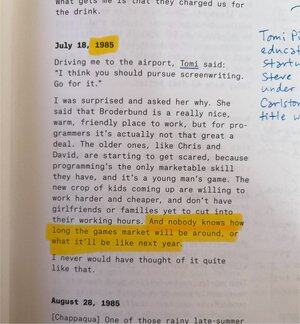 What gets me is that they charged us for
the drink.
July 18, 1985
Driving me to the airport, Tomi said:
"I think you should pursue screenwriting.
Go for it."
I was surprised and asked her why. She
said that Broderbund is a really nice,
warm, friendly place to work, but for pro-
grammers it's actually not that great a
deal. The older ones, like Chris and
David, are starting to get scared, because
programming's the only marketable skill
they have, and it's a young man's game. The
new crop of kids coming up are willing to
work harder and cheaper, and don't have
girlfriends or families yet to cut into
their working hours. And nobody knows how
long the games market will be around, or
what it'll be like next year.
I never would have thought of it quite
like that.
August 28, 1985
[Chappaqua] One of those rainy late-summer
Tomi Pi
educat
startu
Steve
under
Carlston
title w